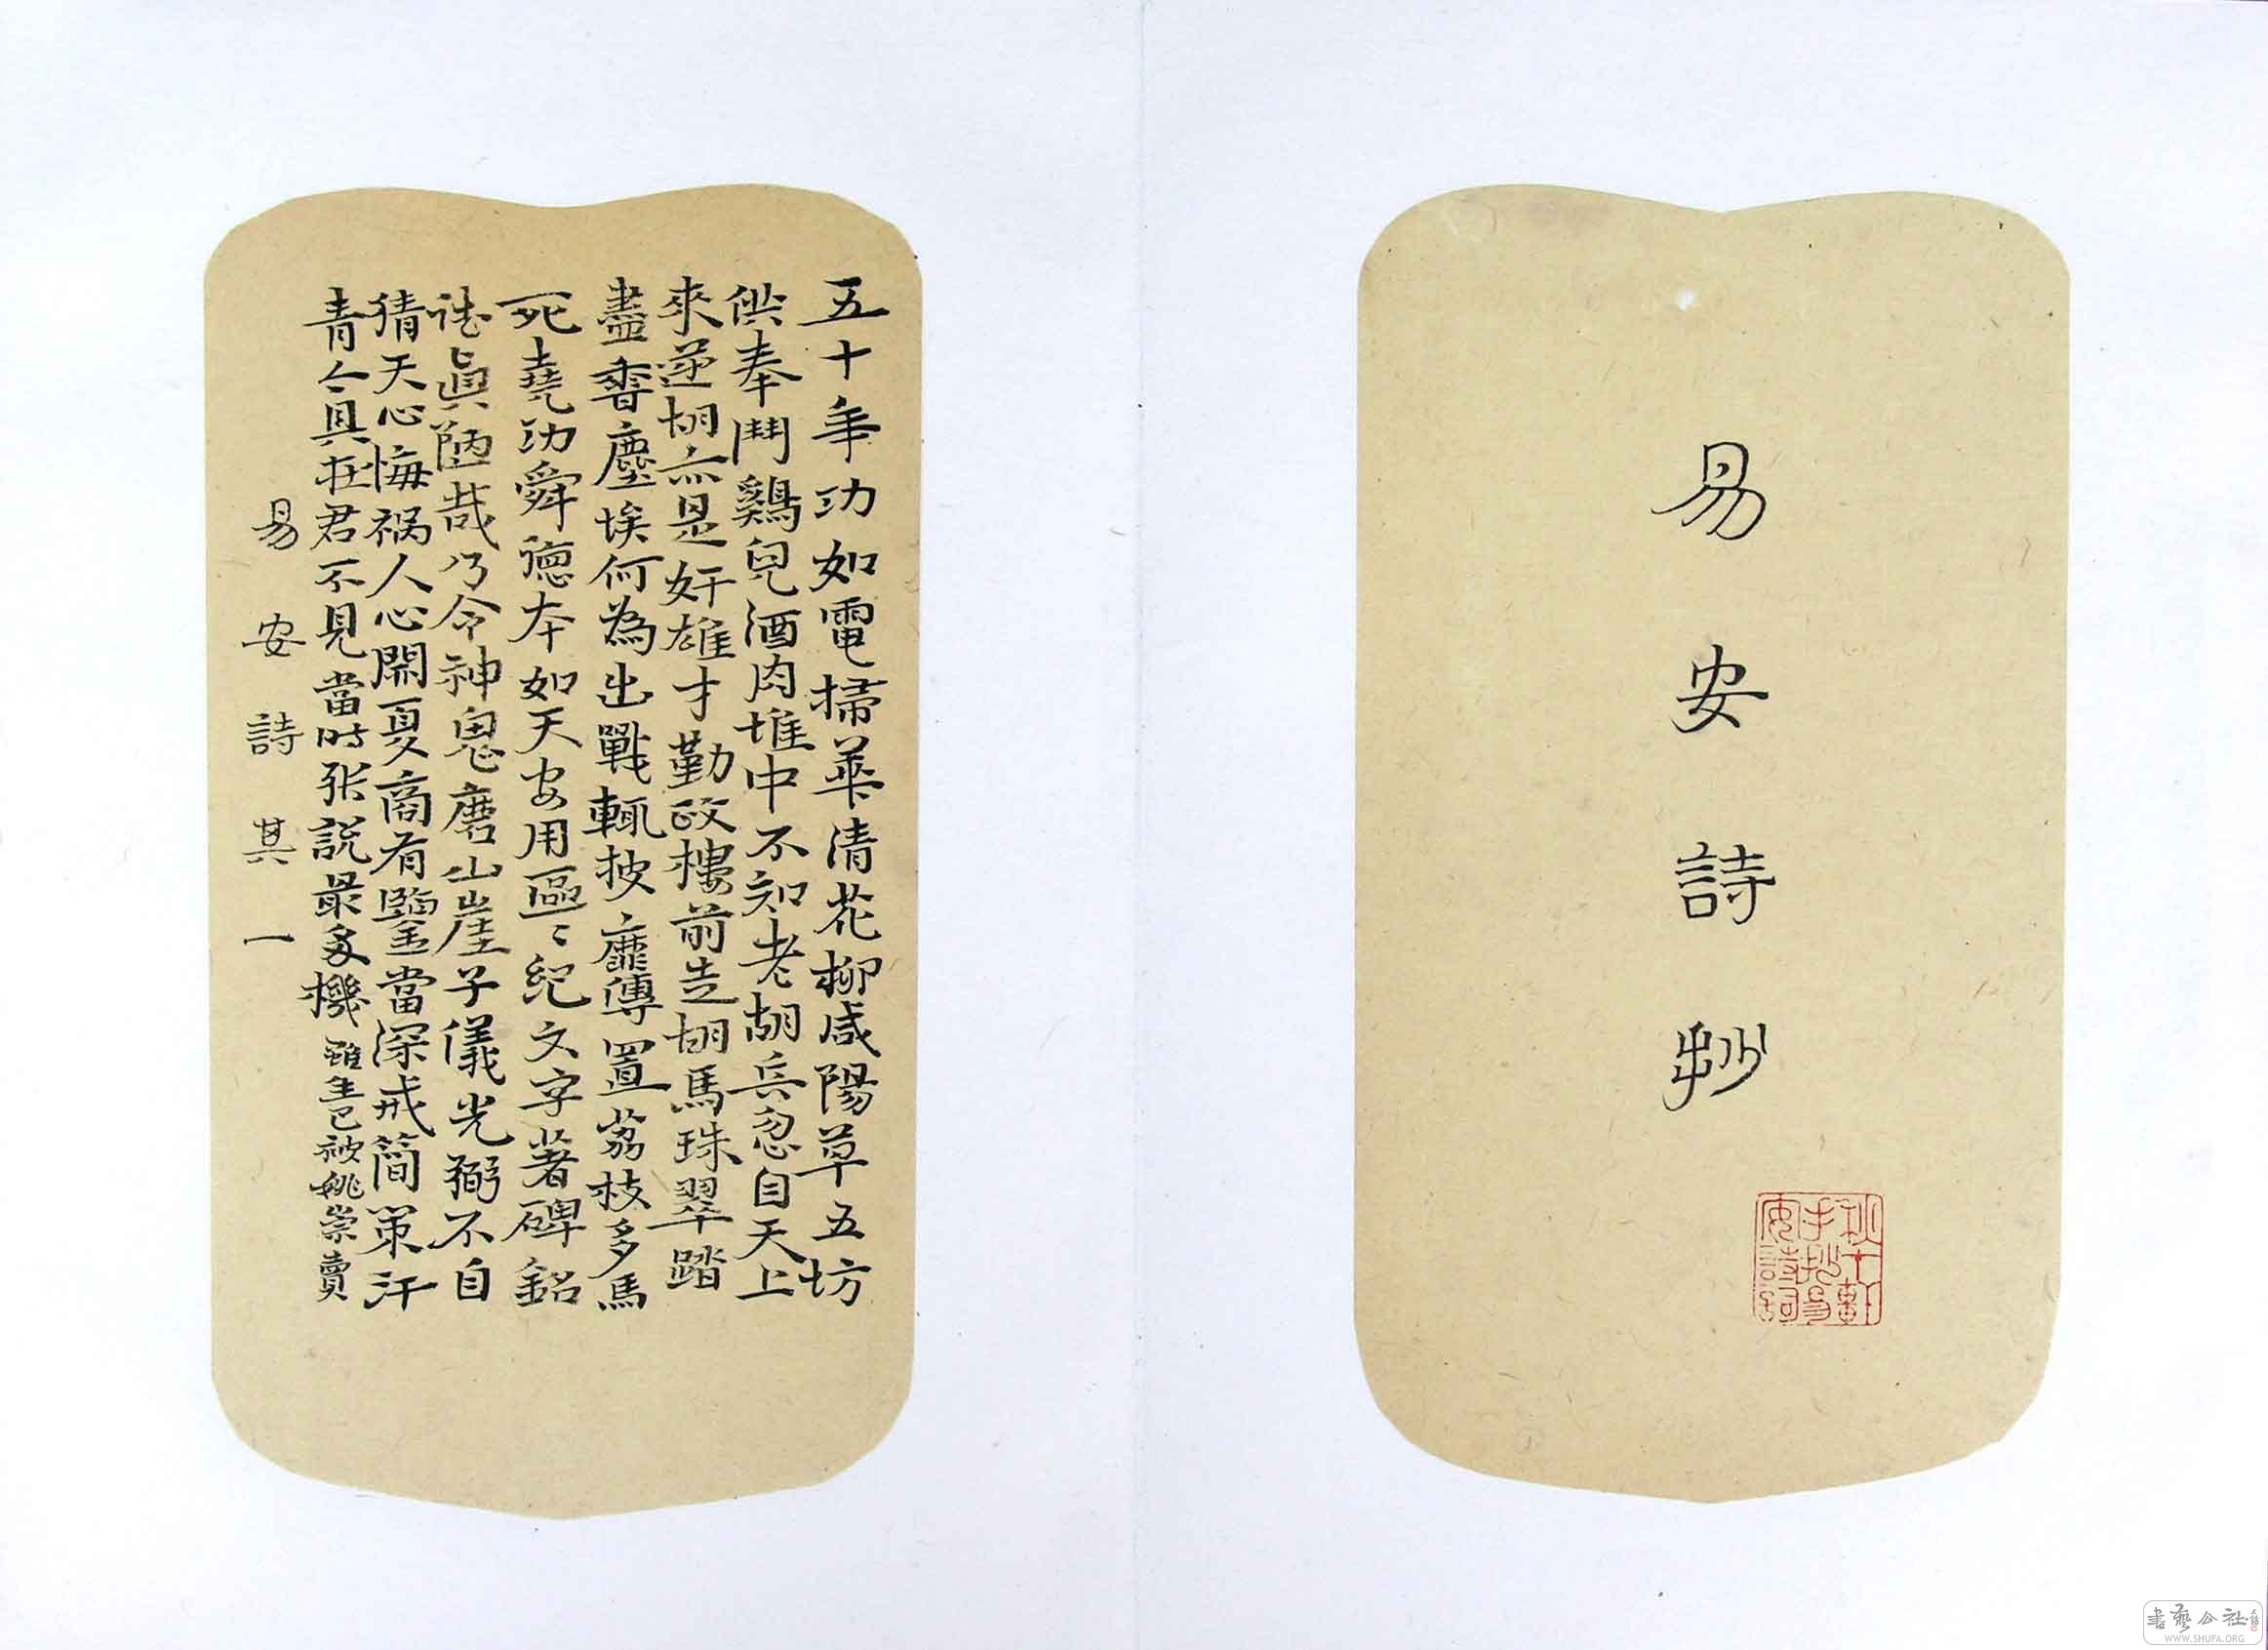 易安詩抄
五十年功如電掃華清花柳咸陽草五坊
供奉鬥鷄兒酒肉堆中不知老胡兵忽自天上
來逆胡亦是奸雄才勤政樓前走胡馬珠翠踏
盡香塵埃何為出戰輒披靡傳置荔枝多馬
死堯功舜德本如天安用區〻紀文字著碑銘
德真陋哉乃令神鬼磨山崖子儀光弼不自
猜天心悔禍人心開夏商有鑒當深戒簡策汗
青今具在君不見當時张説最多機雖生已被姚崇賣
易安詩其一
書藝公社
WWW.SHUFA.ORG